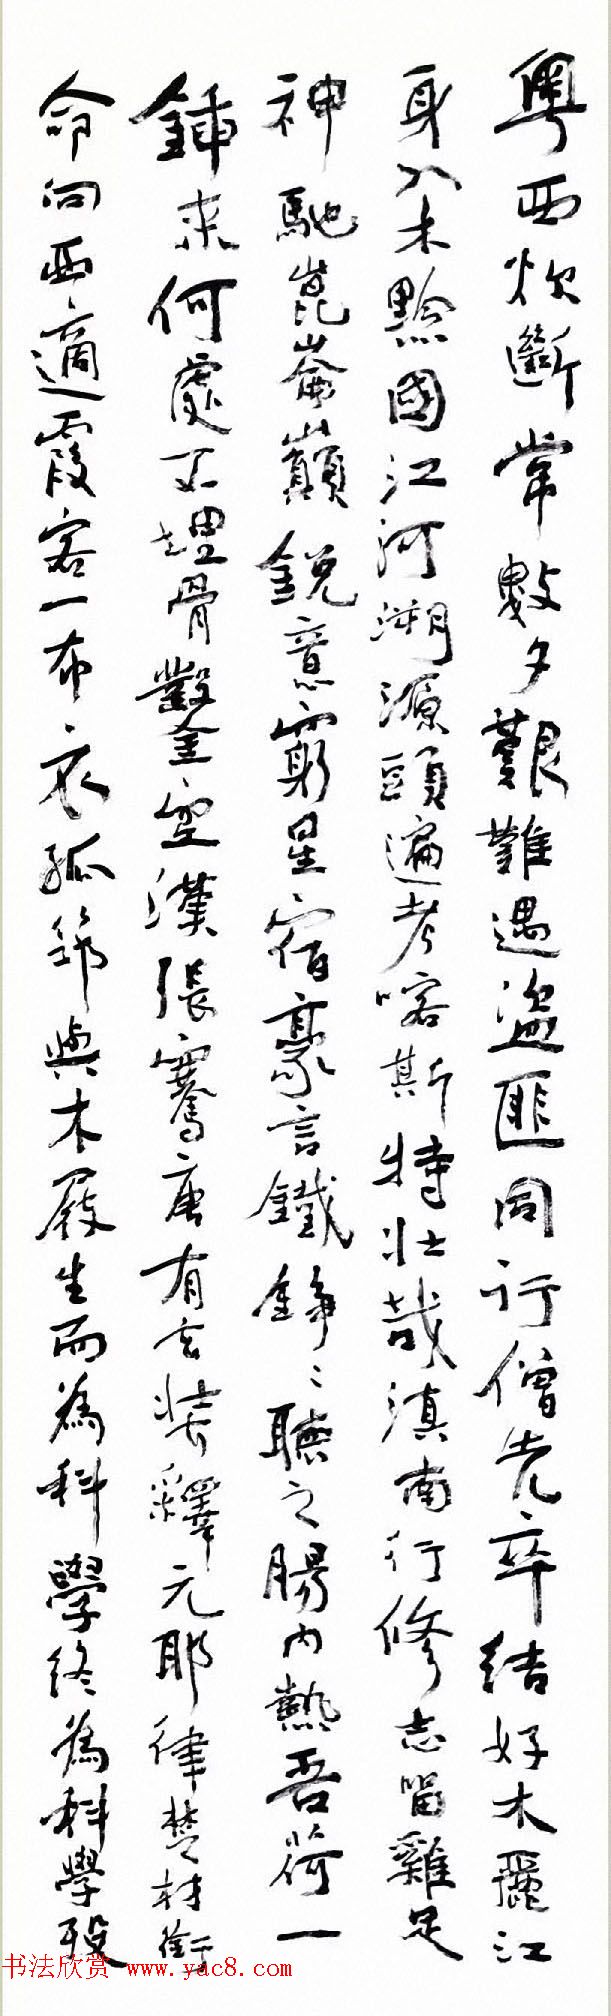 粵西炊斷常數夕艱難遇盜匪同行僧先卒結好木麗江
身入木黔國江河溯源頭遍考喀斯特壯哉滇南行修志留雞足
神馳崑崙巔銳意窮星宿豪言鐵錚〻聽之腸內熱吾荷一
鍤來何處不埋骨鑿空漢張騫唐有玄奘釋元耶律楚材銜
命向西適霞客一布衣孤筇與木屐生而為科學終為科學歿
书法欣赏 www.yac8.com